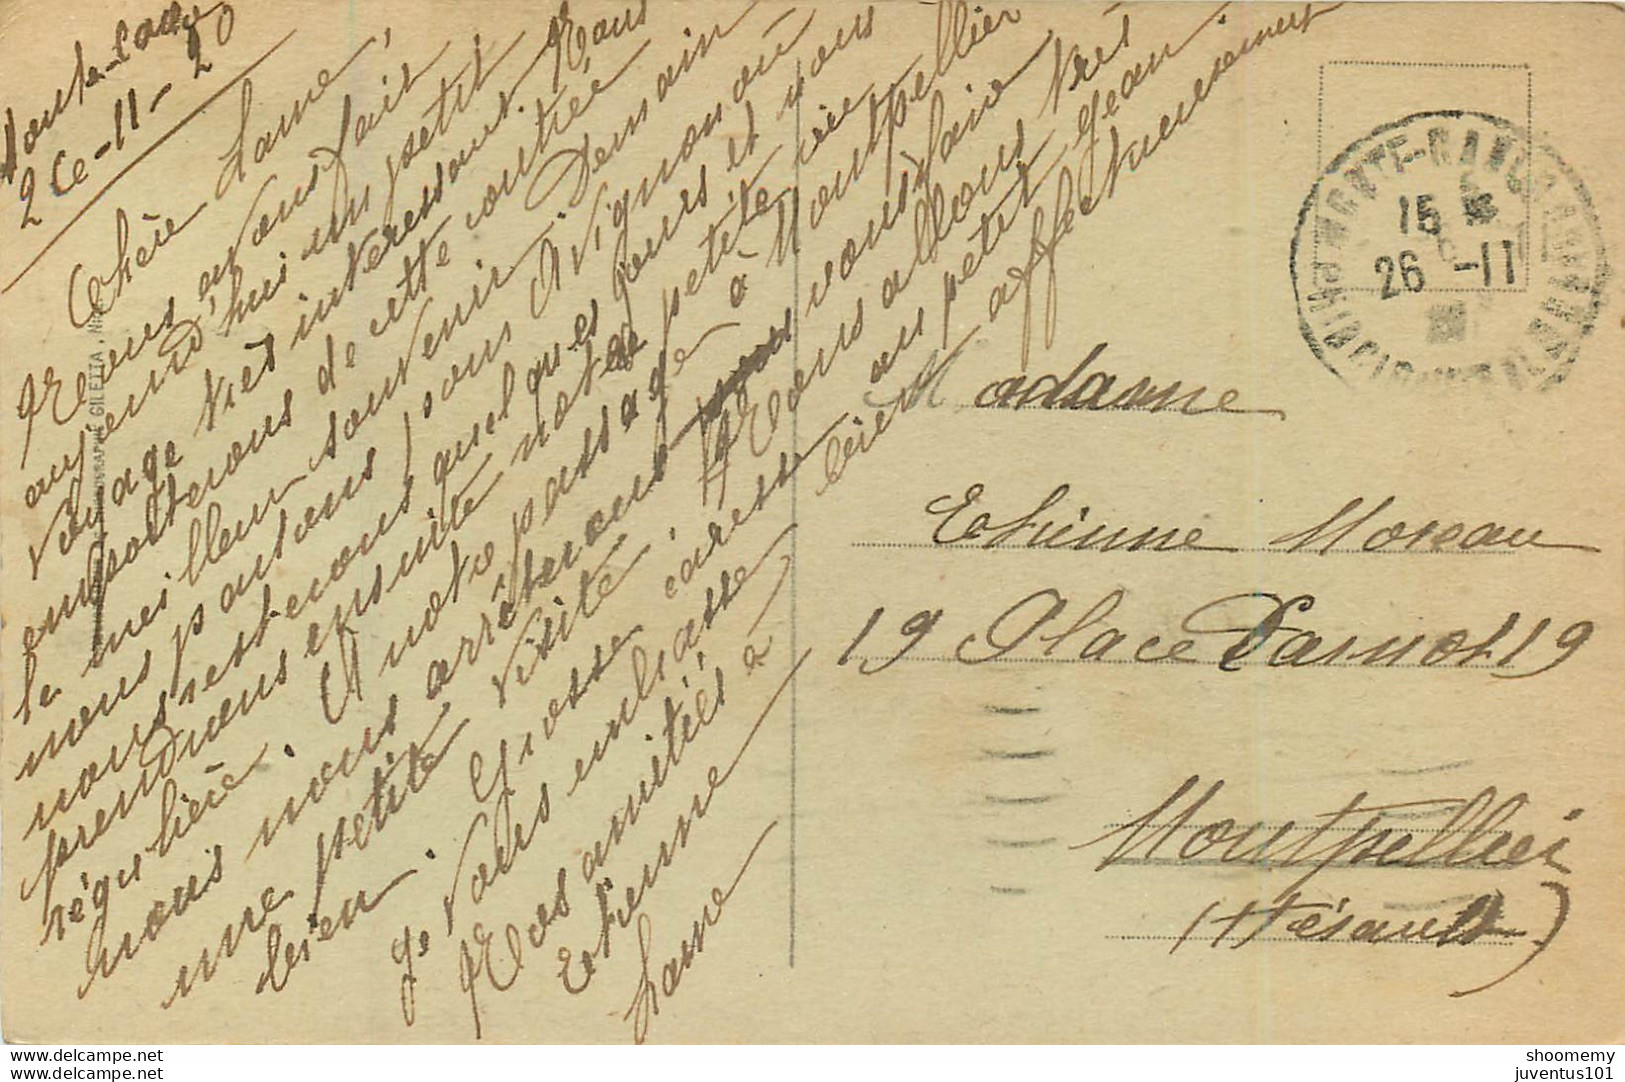 Monte-Carlo
26-11-20
Chère Laure,
Nous avons fait
aujourd'hui un petit
voyage très intéressant. Nous
emporterons de cette contrée
le meilleur souvenir. Demain
nous partons pour Avignon où
nous resterons quelques jours et nous
prendrons ensuite notre petite vie
régulière. A notre passage à Montpellier
nous nous arrêterons pour vous faire
une petite visite. Nous allons très
bien. Grosse caresse au petit Jean.
Je vous embrasse bien affectueusement
Mes amitiés à
Etienne
Laure
Madame
Etienne Moreau
19 Place Carnot 19
Montpellier
(Hérault)
MONTE-CARLO
15
26 -11
PRINCIPAUTÉ DE MONACO
GILETTA, NICE
www.delcampe.net
www.delcampe.net
shoomemy
juventus101